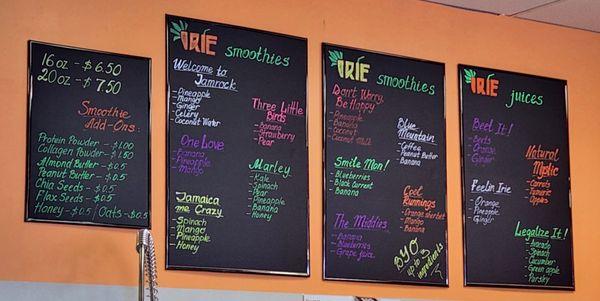 16 oz - $ 6.50
20 oz - $ 7.50
Smoothie
Add-Ons:
Protein Powder - $1.00
Collagen Powder - $1.50
Almond Butter - $0.5
Peanut Butter - $0.5
Chia Seeds - $0.5
Flax Seeds - $0.5
Honey - $0.5/Oats - $0.5
IRIE smoothies
Welcome to
Jamrock
- Pineapple
- Mango
- Ginger
- Celery
- Coconut Water
One Love
- Banana
- Pineapple
- Mango
Jamaica
me Crazy
- Spinach
- Mango
- Pineapple
- Honey
Three Little
Birds
- Banana
- Strawberry
- Pear
Marley
- Kale
- Spinach
- Pear
- Pineapple
- Banana
- Honey
IRIE smoothies
Don't Worry,
Be Happy
- Pineapple
- Banana
- Coconut
- Coconut Milk
Smile Mon!
- Blueberries
- Black Currant
- Banana
The Maddies
- Banana
- Blueberries
- Grape juice
Blue
Mountain
- Coffee
- Peanut Butter
- Banana
Cool
Runnings
- Orange sherbet
- Mango
- Banana
BYO
up to 3
ingredients
IRIE juices
Beet It!
- Beets
- Orange
- Ginger
Feelin Irie
- Orange
- Pineapple
- Ginger
Natural
Mystic
- Carrots
- Turmeric
- Apples
Legalize It!
- Avocado
- Spinach
- Cucumber
- Green apple
- Parsley